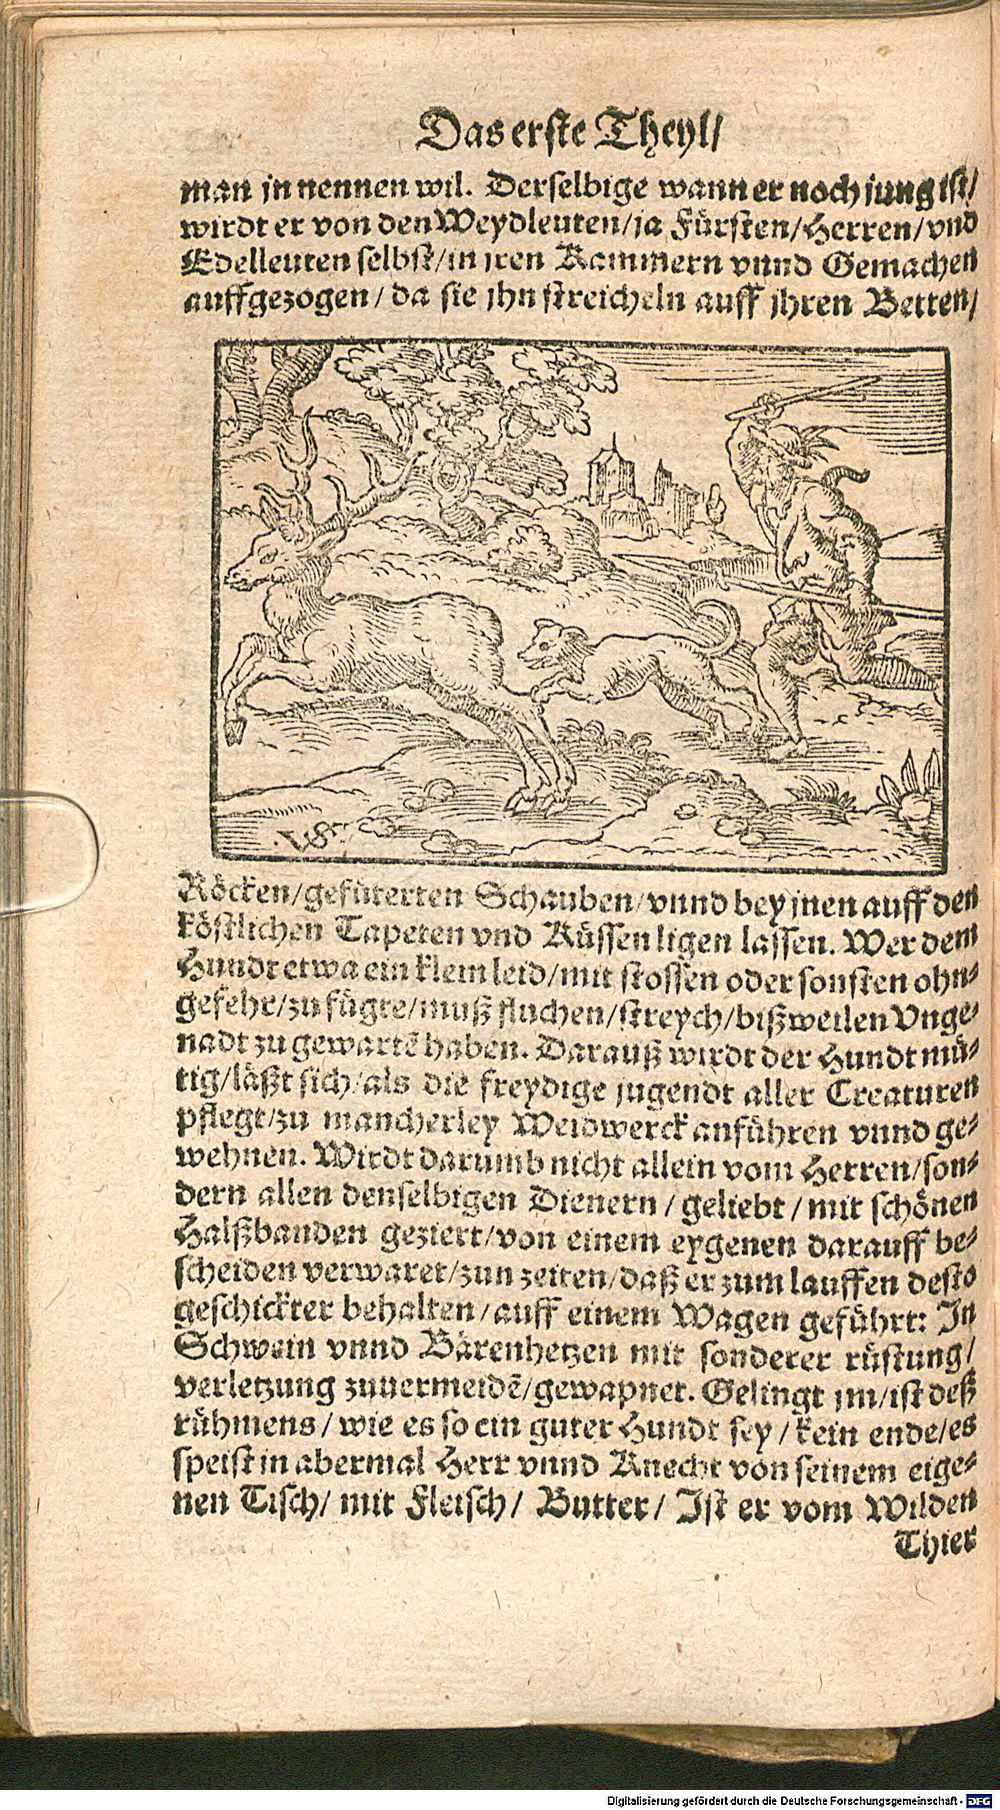 Das erste Theyl/
man jn nennen wil. Derselbige wann er noch jung ist/
wirdt er von den Weydleuten/ja Fürsten/Herren/vnd
Edelleuten selbst/in jren Kammern vnnd Gemachen
auffgezogen/ da sie jhn streicheln auff jhren Betten/
VS
Röcken/gefüterten Schauben/vnnd bey jnen auff den
köstlichen Tapeten vnd Küssen ligen lassen. Wer dem
Hundt etwa ein klein leid/mit stossen oder sonsten ohn⸗
gefehr/zu fügte/muß fluchen/streych/bißweilen Vnge⸗
nadt zu gewartē haben. Darauß wirdt der Hundt mü⸗
tig/läßt sich/als die freydige jugendt aller Creaturen
pflegt/zu mancherley Weidwerck anführen vnnd ge⸗
wehnen. Wirdt darumb nicht allein vom Herren/son⸗
dern allen denselbigen Dienern / geliebt / mit schönen
Halßbanden geziert/von einem eygenen darauff be⸗
scheiden verwaret/zun zeiten/daß er zum lauffen desto
geschickter behalten/auff einem Wagen geführt: In
Schwein vnnd Bärenhetzen mit sonderer rüstung/
verletzung zuuermeidē/gewapnet. Gelingt jm/ist deß
rühmens / wie es so ein guter Hundt sey / kein ende/es
speist in abermal Herr vnnd Knecht von seinem eige⸗
nen Tisch/ mit Fleisch/ Butter/ Ist er vom Wilden
Thier
Digitalisierung gefördert durch die Deutsche Forschungsgemeinschaft - DFG